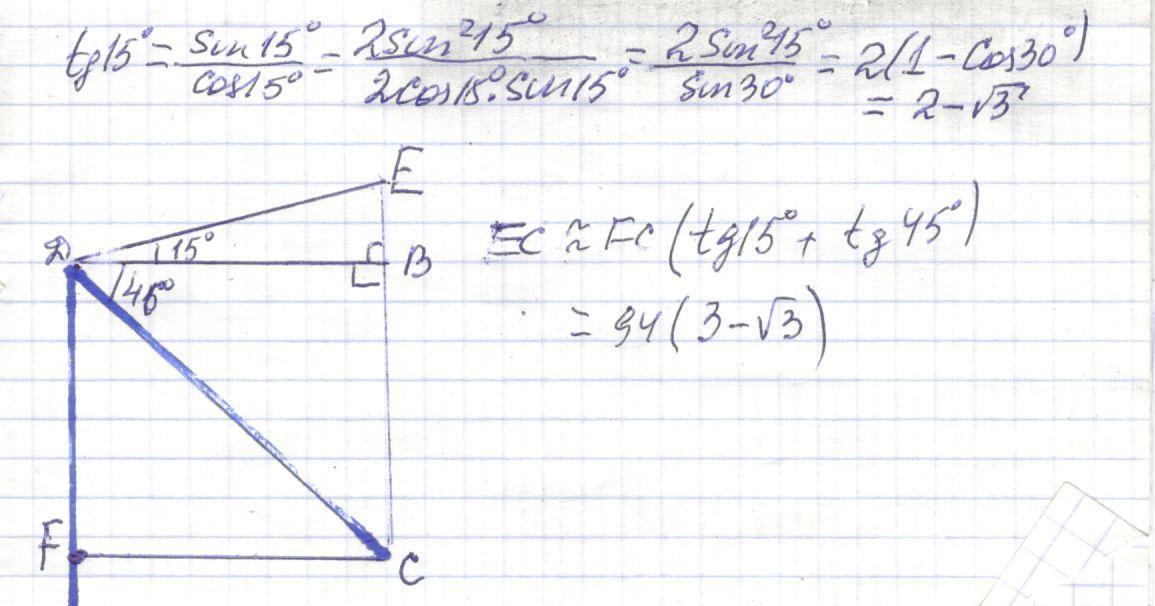 tg15° = sin15° / cos15° = 2sin²15° / 2cos15°·sin15° = 2sin²15° / sin30° = 2(1-cos30°)
= 2-√3
E
D
15°
B
45°
EC ≈ FC(tg15° + tg45°)
= 94(3-√3)
F
C